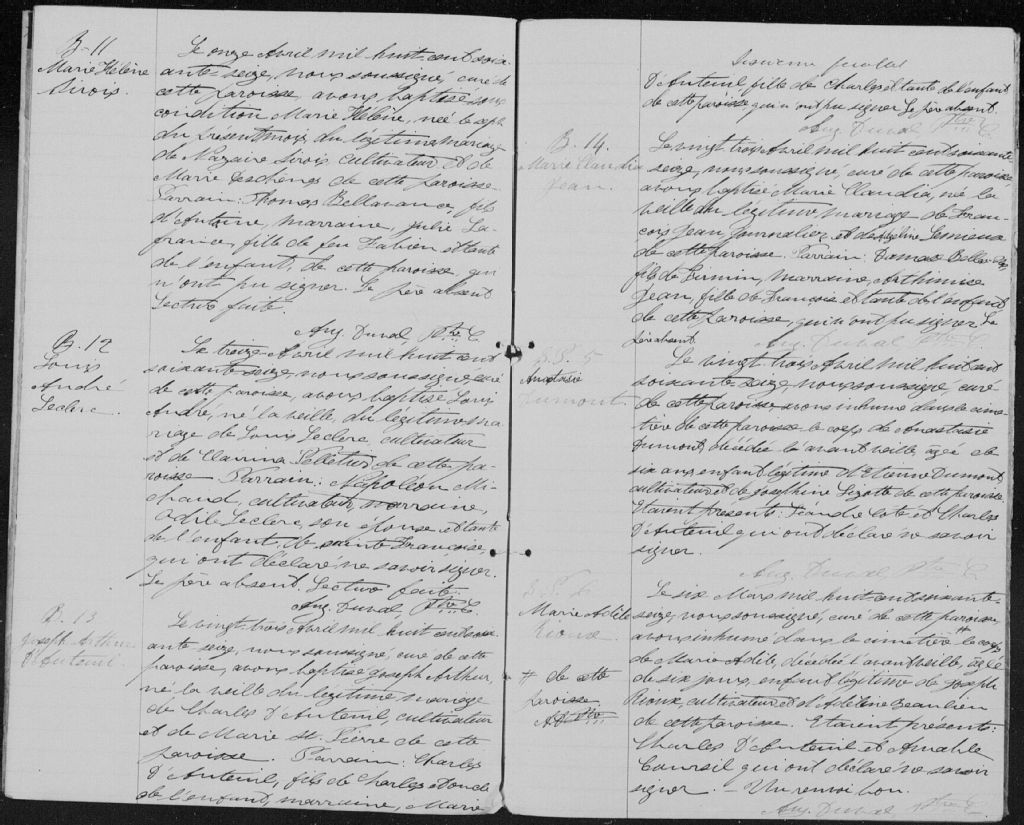 B-11
Marie Hélène
Sirois.
Le onze Avril mil huit cent soix
ante-seize, nous soussigné, curé de
cette paroisse, avons baptisé sous
condition Marie Hélène, née le sept
du présent mois, du légitime mariage
de Nazaire Sirois cultivateur et de
Marie Deschènes de cette paroisse.
Parrain: Thomas Bellavance, fils
d'Antoine, marraine, julie La-
france, fille de feu Fabien et tante
de l'enfant, de cette paroisse, qui
n'ont pu signer. Le père absent
Lecture faite.
Aug. Duval Ptre C.
B-12
Louis
André
Leclerc.
Le treize Avril mil huit cent
soixante-seize, nous soussigné, curé
de cette paroisse, avons baptisé Louis
André, né la veille, du légitime ma-
riage de Louis Leclerc, cultivateur
et de Clarina Pelletier de cette pa-
roisse Parrain: Napoléon Mi-
chaud, cultivateur, marraine,
Odile Leclerc, son épouse, et tante
de l'enfant, de sainte Françoise,
qui ont déclaré ne savoir signer.
Le père absent. Lecture faite.
Aug. Duval Ptre C.
B. 13
Joseph Arthur
D'Auteuil.
Le vingt-trois Avril mil huit cent soix
ante seize, nous soussigné, curé de cette
paroisse, avons baptisé joseph Arthur,
né la veille du légitime mariage
de Charles D'Auteuil, cultivateur
et de Marie St. Pierre de cette
paroisse. Parrain: Charles
D'Auteuil, fils de Charles et oncle
de l'enfant, marraine, Marie
D'Auteuil, fille de Charles et tante de l'enfant
de cette paroisse qui n'ont pu signer Le père absent.
Aug. Duval Ptre C
B. 14.
Marie Claudia
Jean.
Le vingt trois Avril mil huit cent soixante
seize, nous soussigné, curé de cette paroisse,
avons baptisé Marie Claudia, née la
veille du légitime mariage de Fran-
çois Jean, journalier et de Lemieux
de cette paroisse. Parrain: Damase
fils de Firmin, marraine, Arthimise
Jean, fille de François et tante de l'enfant
de cette paroisse, qui n'ont pu signer Le
père absent.
Aug. Duval Ptre C.
S. 5
Anastasie
Dumont.
Le vingt trois Avril mil huit cent
soixante-seize nous soussigné, curé
de cette paroisse avons inhumé dans le cime-
tière de cette paroisse le corps de Anastasie
Dumont, décédée l'avant veille, agée de
six ans, enfant légitime d'Etienne Dumont,
cultivateur et de josephine Lizotte de cette paroisse.
Etaient présents: Léandre Coté et Charles
D'Auteuil qui ont déclaré ne savoir
signer.
Aug. Duval Ptre C
S. 6
Marie Adèle
Rioux
# de cette
paroisse
A.D. Ptre
Le six Mars mil huit cent soixante-
seize, nous soussigné, curé de cette paroisse,
avons inhumé dans le cimetière # le corps
de Marie Adèle, décédée l'avant veille, agée
de six jours, enfant légitime de joseph
Rioux, cultivateur et d'Adeline Beaulieu
de cette paroisse. Etaient présents:
Charles D'Auteuil et Amable
qui ont déclaré ne savoir
signer - Un renvoi bon.
Aug. Duval Ptre C